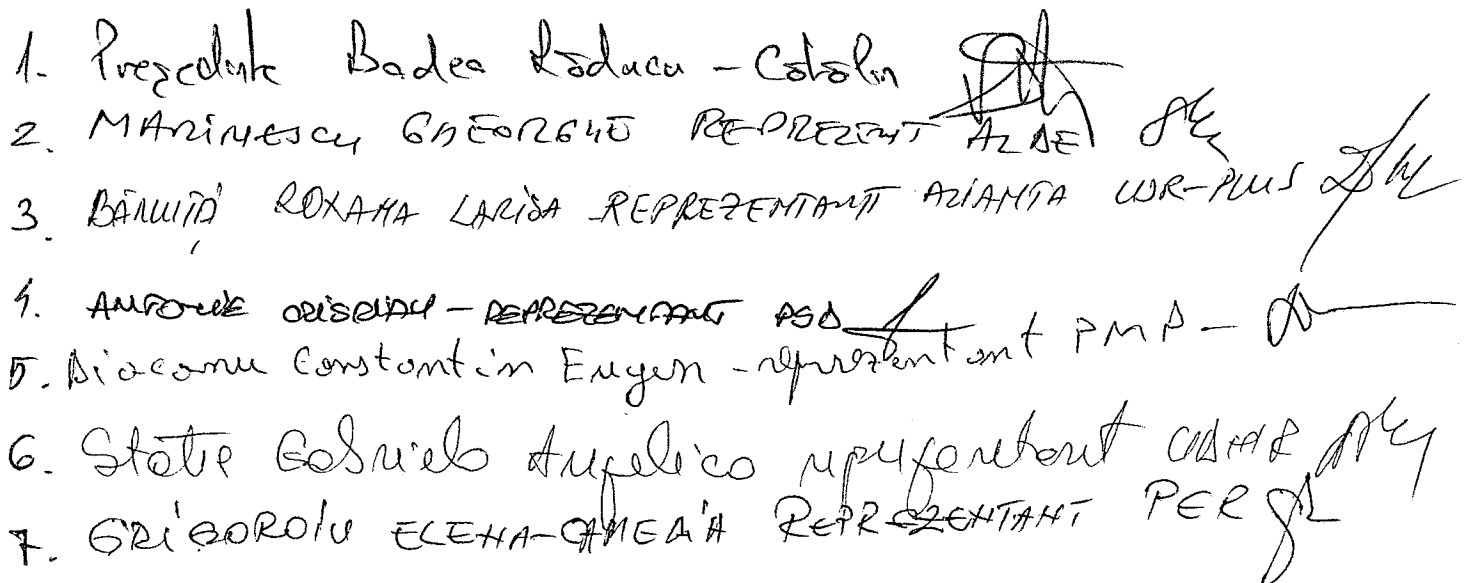 1. Președinte Badea Răducu - Cătălin
2. MARINESCU GHEORGHE REPREZENT ALDE
3. BĂNUȚĂ ROXANA LARISA - REPREZENTANT ALIANȚA USR-PLUS
4. ANTONIE - REPREZENTANT PSD
5. Diaconu Constantin Eugen - reprezentant PMP -
6. Statie Gabriela Angelica reprezentant UDMR
7. GRIGOROIU ELENA-CAMELIA REPREZENTANT PER